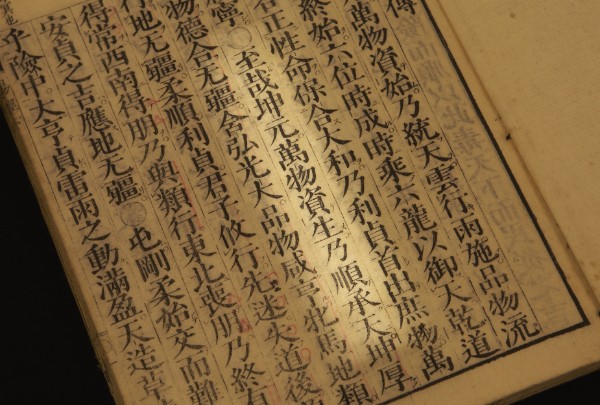 傳
萬物資始乃統天雲行雨施品物流
終始六位時成時乘六龍以御天乾道
各正性命保合大和乃利貞首出庶物萬
寧〇至哉坤元萬物資生乃順承天坤厚
物德合无疆含弘光大品物咸亨牝馬地類
行地无疆柔順利貞君子攸行先迷失道後
得常西南得朋乃與類行東北喪朋乃終有
安貞之吉應地无疆〇屯剛柔始交而難
乎險中大亨貞雷雨之動滿盈天造草